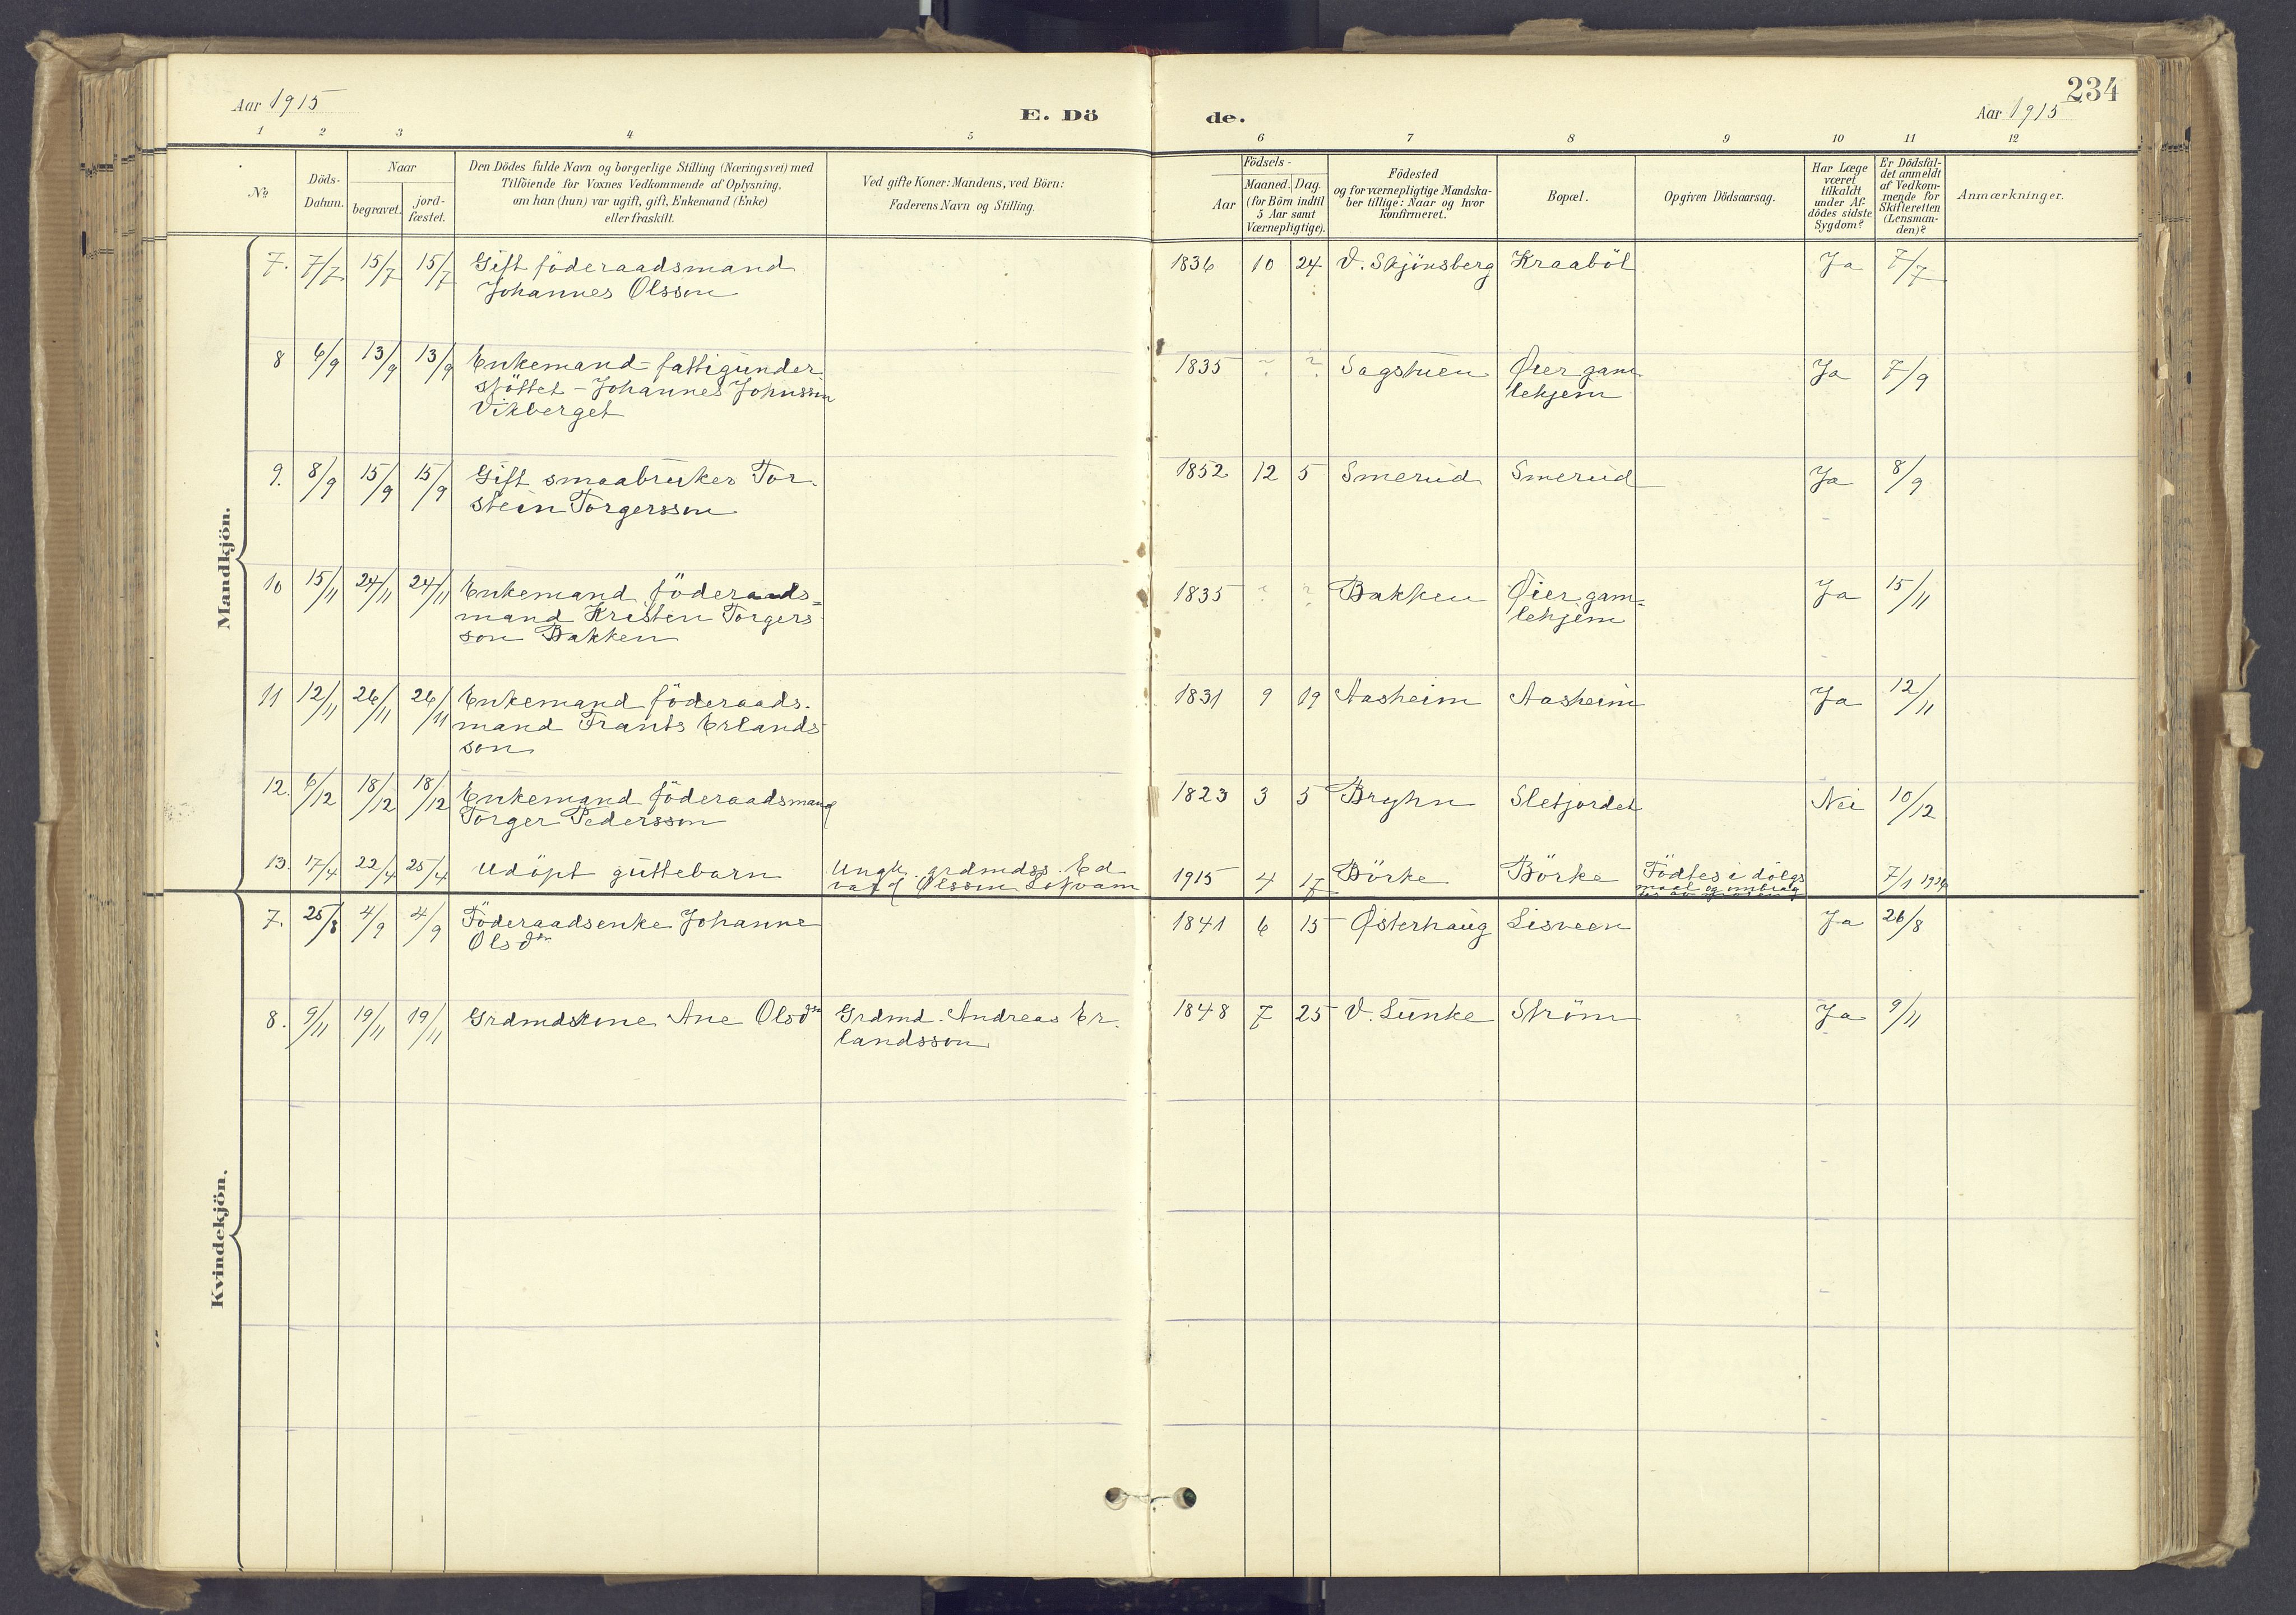 234
Aar 1915
E. Dö
de.
Aar 1915
1 2 3 4 5 6 7 8 9 10 11 12
№
Döds-
Datum.
Naar
begravet.
jord-
fæstet.
Den Dödes fulde Navn og borgerlige Stilling (Næringsvei) med
Tilföiende for Voxnes Vedkommende af Oplysning,
om han (hun) var ugift, gift, Enkemand (Enke)
eller fraskilt.
Ved gifte Koner: Mandens, ved Börn:
Faderens Navn og Stilling.
Födsels-
Aar
Maaned. Dag.
(for Börn indtil
5 Aar samt
Værnepligtige).
Födested
og for værnepligtige Mandska-
ber tillige: Naar og hvor
Konfirmeret.
Bopæl.
Opgiven Dödsaarsag.
Har Læge
været
tilkaldt
under Af-
dödes sidste
Sygdom?
Er Dödsfal-
det anmeldt
af Vedkom-
mende for
Skifteretten
(Lensman-
den)?
Anmærkninger.
Mandkjön.
7. 7/7 15/7 15/7 Gift föderaadsmand 1836 10 24 V. Skjönsberg Kraaböl Ja 7/7
Johannes Olsson
8 6/9 13/9 13/9 Enkemand - fattigunder 1835 ? ? Sagstuen Øier gam Ja 7/9
stöttet - Johannes Johnsson lehjem
Vikberget
9. 8/9 15/9 15/9 Gift smaabruker Tor- 1852 12 5 Smerud Smerud Ja 8/9
stein Torgersson
10 15/11 24/11 24/11 Enkemand föderaads= 1835 ? ? Bakken Øier gam= Ja 15/11
mand Kristen Torgers lehjem
son Bakken
11 12/11 26/11 26/11 Enkemand föderaads- 1831 9 19 Aasheim Aasheim Ja 12/11
mand Frants Erlands
son
12. 6/12 18/12 18/12 Enkemand föderaadsmand 1823 3 5 Bryhn Sletjordet Nei 10/12
Torger Pedersson
13. 17/4 22/4 25/4 Udöpt guttebarn Ungk. grdmdss. Ed 1915 4 17 Börke Börke Födtes i dölgs 7/1 1916
vard Olsson maal og ombrag
Kvindekjön.
7. 25/8 4/9 4/9 Föderaadsenke Johanne 1841 6 15 Østerhaug Lisveen Ja 26/8
Olsdtr
8. 9/11 19/11 19/11 Grdmdskone Ane Olsdtr Grdmd. Andreas Er- 1848 7 25 V. Lunke Ström Ja 9/11
landsson